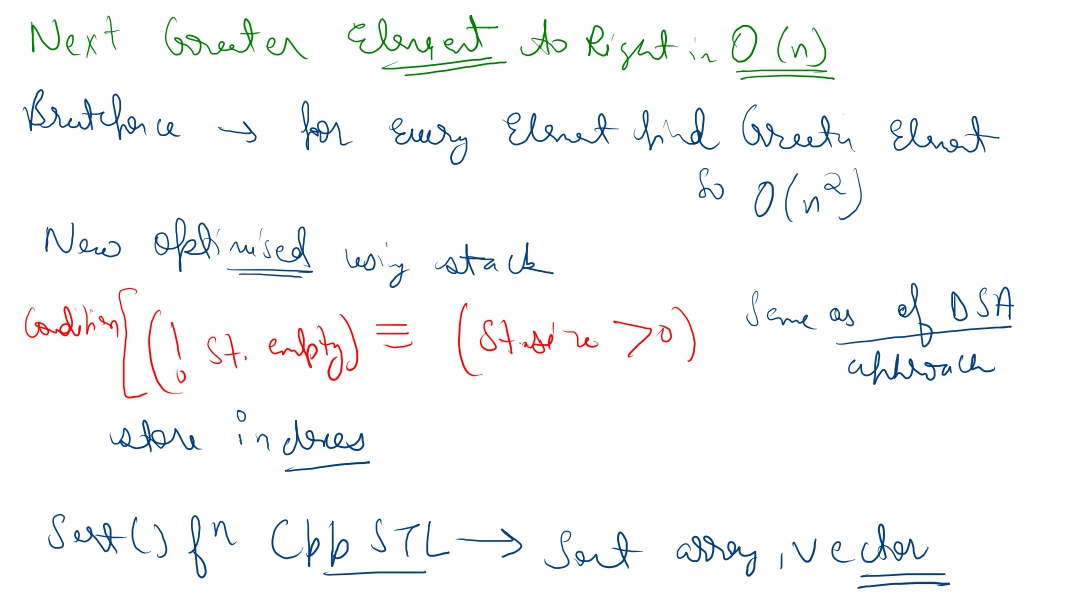 Next Greater Element to Right in O(n)
Bruteforce → for Every Element find Greater Element
So O(n²)
New optimised using stack
Condition [(! St. empty) ≡ (St.size > 0)
Same as of DSA
approach
store indexes
Sort() fn Cpp STL → Sort array, vector